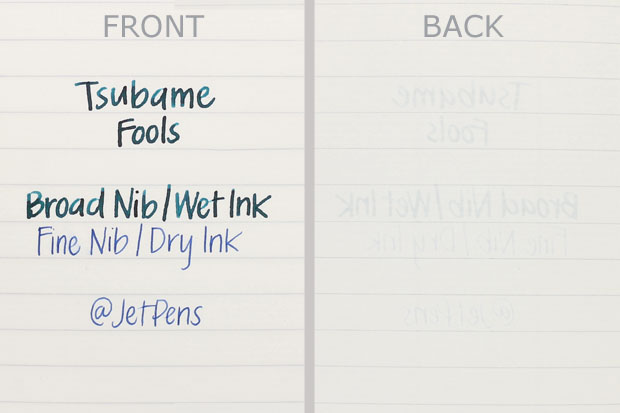 FRONT
Tsubame
Fools
Broad Nib/Wet Ink
Fine Nib/Dry Ink
@JetPens
BACK